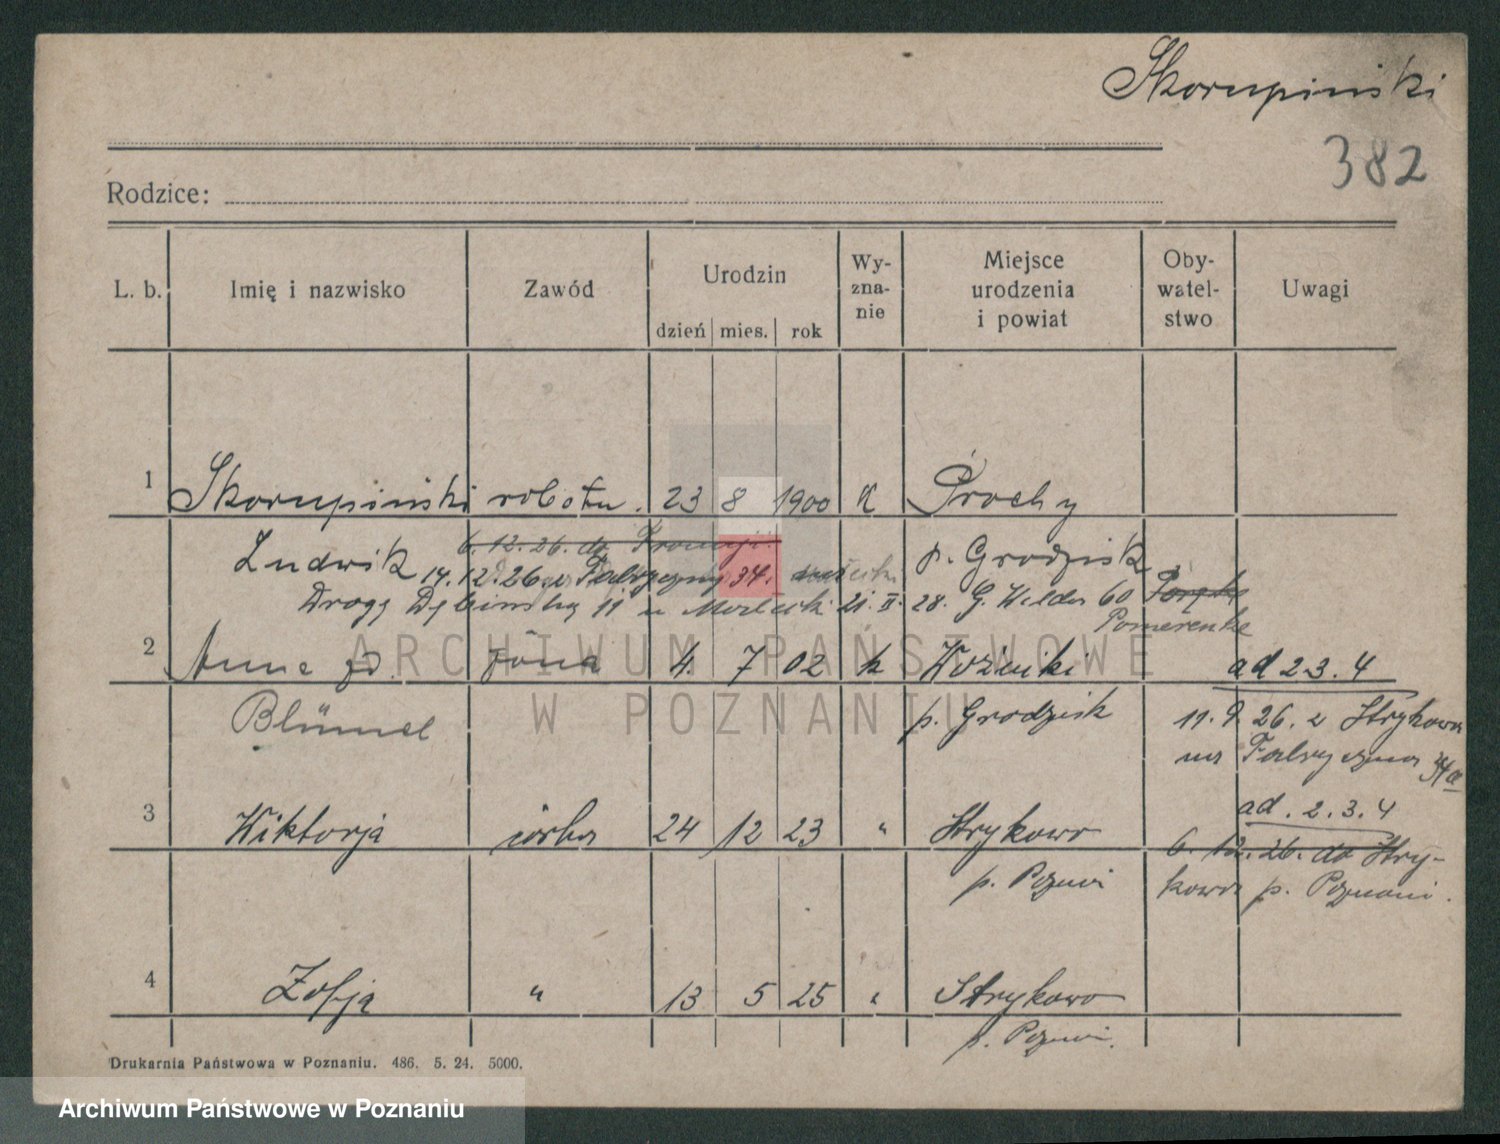 Skorupiński
382
Rodzice:
L. b. Imię i nazwisko Zawód Urodzin dzień mies. rok Wy-zna-nie Miejsce urodzenia i powiat Oby-watel-stwo Uwagi
1 Skorupiński robotn. 23 8 1900 K Prochy
6. 12. 26. do
Ludwik p. Grodzisk
14. 12. 26 z Fabrycznej 34.
Drogę Dębińską 11 21. II. 28. G. Wilda 60
Pomerenke
2 Anna zd. żona 4. 7 02 k Woźniki ad 2 3. 4
Blümel p. Grodzisk 11. 9. 26. z Strykowa
na Fabryczna 34a
ad. 2. 3. 4
3 Wiktorja córka 24 12 23 " Strykowo
6. 12. 26. do Stry-
p. Poznań kowa p. Poznań.
4 Zofja " 13 5 25 " Strykowo
p. Poznań.
Drukarnia Państwowa w Poznaniu. 486. 5. 24. 5000.
ARCHIWUM PAŃSTWOWE
W POZNANIU
Archiwum Państwowe w Poznaniu